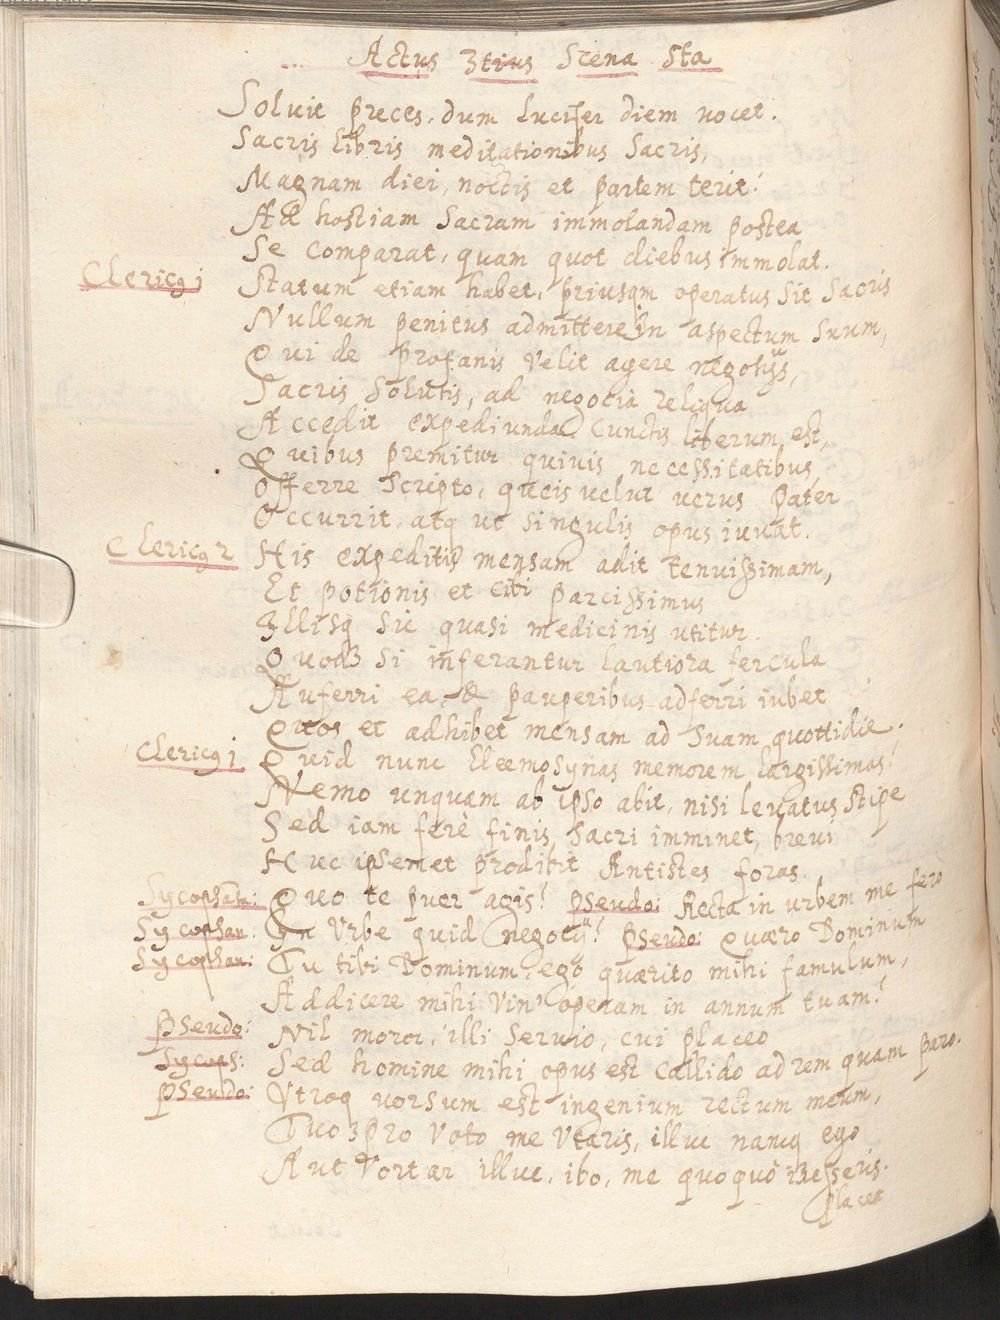 Actus 3tius Scena 5ta
Soluit preces, dum Lucifer diem nocet.
Sacris libris meditationibus Sacris,
Magnam diei, noctis et partem terit.
Ad hostiam Sacram immolandam postea
Se comparat, quam quot diebus immolat.
Clericq 1 Statum etiam habet, priusqm operatus sit Sacris
Nullum penitus admittere in aspectum suum,
Qui de Profanis velit agere negotijs,
Sacris Solutis, ad negotia reliqua
Accedit expediunda, cunctis liberum est,
Quibus premitur quiuis necessitatibus,
Offerre Scripto, queis velut verus Pater
Occurrit, atq ut singulis opus iuuat.
Clericq 2 His expeditis mensam adit tenuissimam,
Et potionis et cibi parcissimus
Illisq sic quasi medicinis utitur.
Quod si inferantur lautiora fercula
Auferri ea, & pauperibus adferri iubet
Quos et adhibet mensam ad suam quottidie.
Clericq 1 Quid nunc Eleemosynas memorem largissimas?
Nemo unquam ab ipso abit, nisi leuatus stipe
Sed iam ferè finis sacri imminet, breui
Huc ipsemet prodibit Antistes foras.
Sycophanta: Quo te puer agis? Pseudo: Recta in urbem me fero
Sycophan: In Urbe quid negotij? Pseudo: Quæro Dominum
Sycophan: Tu tibi Dominum, ego quærito mihi famulum,
Addicere mihi vin' operam in annum tuam?
Pseudo: Nil moror, illi seruio, cui placeo
Sycops: Sed homine mihi opus est callido ad rem quam paro.
Pseudo: Utroq uorsum est ingenium rectum meum,
Tuo pro voto me utaris, illuc namq ego
Aut vortar illuc, ibo, me quoquò iusseris.
Placet